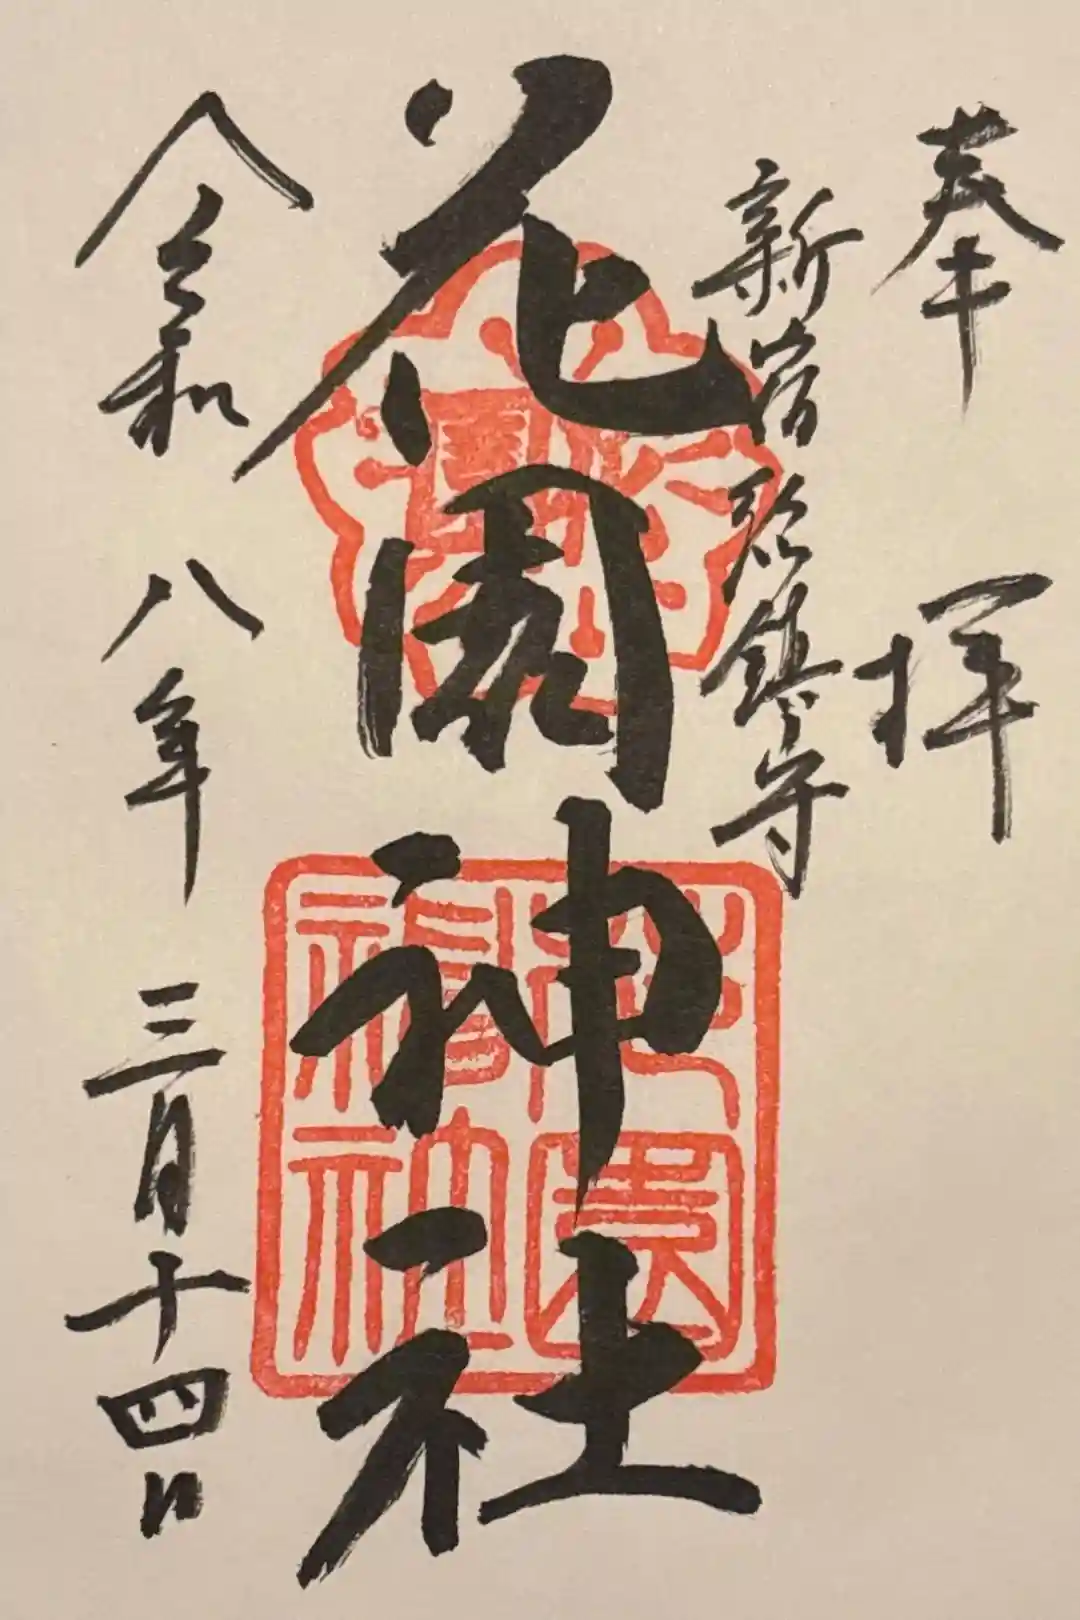 奉拝
新宿総鎮守
花園神社
花園神社
令和八年三月十四日